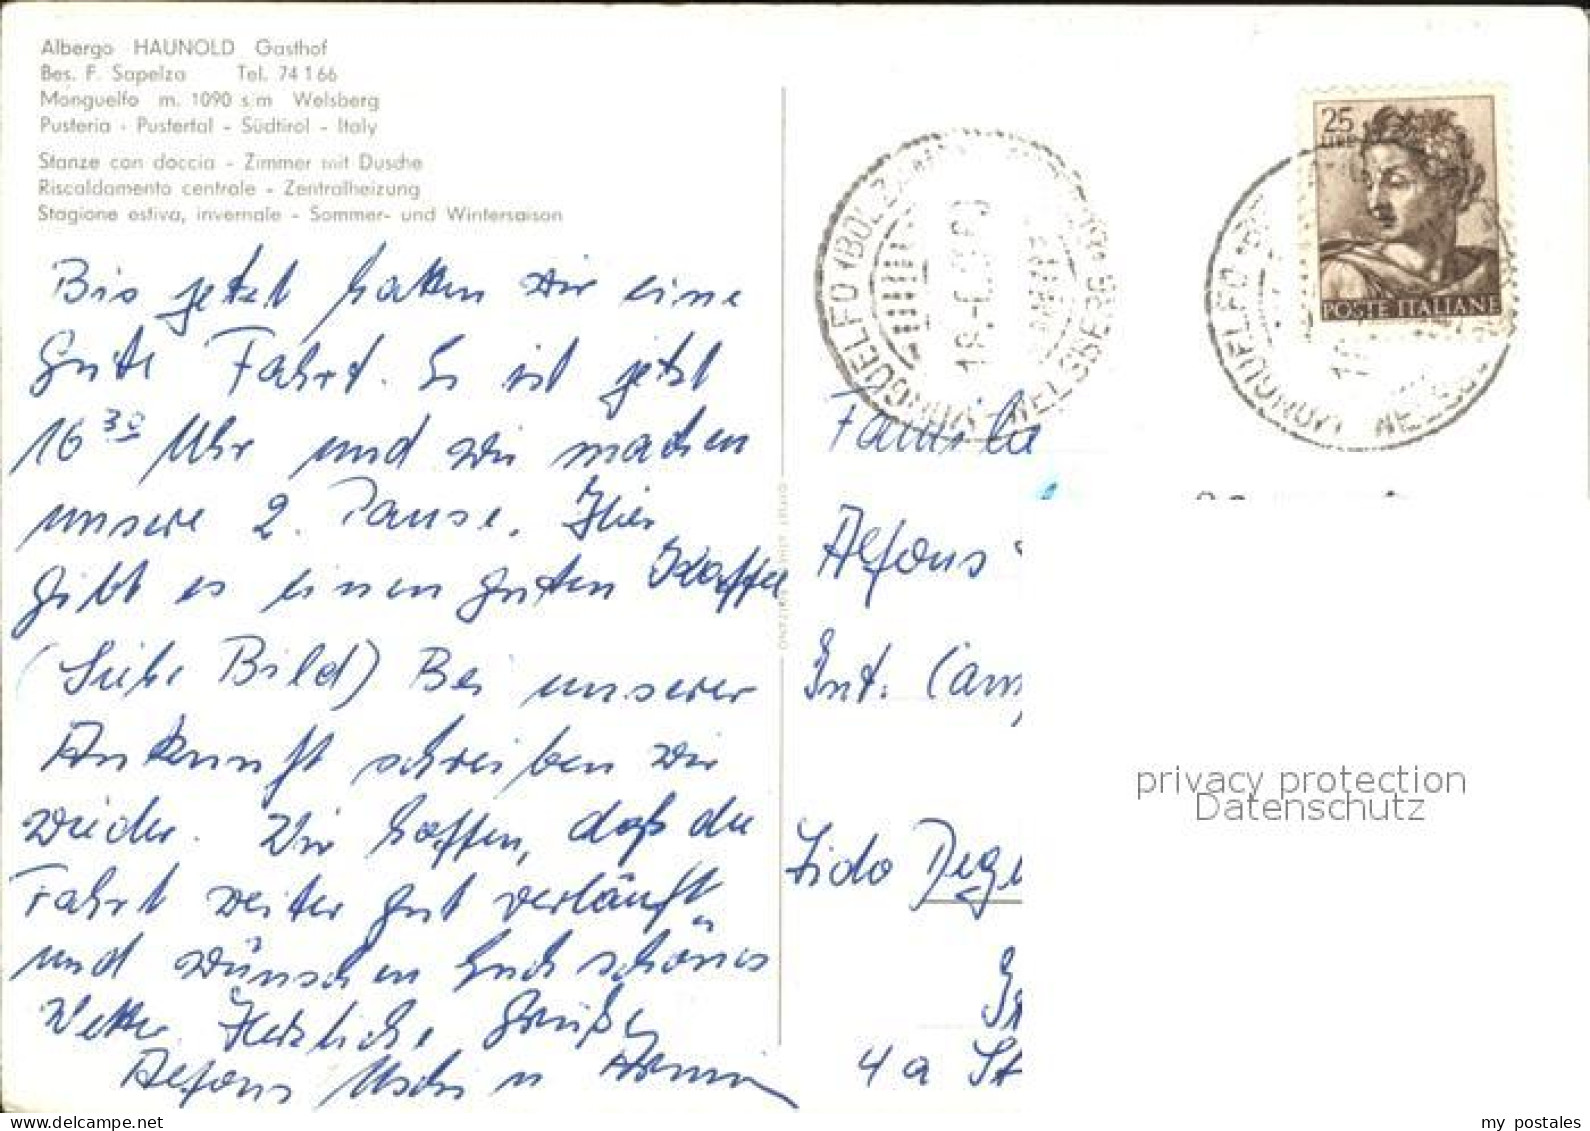 Albergo HAUNOLD Gasthof
Bes. F. Sapelza Tel. 74166
Monguelfo m. 1090 s/m Welsberg
Pusteria - Pustertal - Südtirol - Italy
Stanze con doccia - Zimmer mit Dusche
Riscaldamento centrale - Zentralheizung
Stagione estiva, invernale - Sommer- und Wintersaison
Bis jetzt hatten wir eine
gute Fahrt. Es ist jetzt
16 30 Uhr und wir machen
unsere 2. Pause. Hier
gibt es einen guten Kaffee
(Siehe Bild) Bei unserer
Ankunft schreiben wir
wieder. Wir hoffen, daß die
Fahrt weiter gut verläuft
und wünschen Euch schönes
Wetter. Herzliche Grüße
Alfons Uschi u
25
LIRE
POSTE ITALIANE
MONGUELFO (BOLZANO)
WELSBERG
MONGUELFO
Familie
Alfons
Int. Cam
Lido Dege
4 a St
privacy protection
Datenschutz
my postales